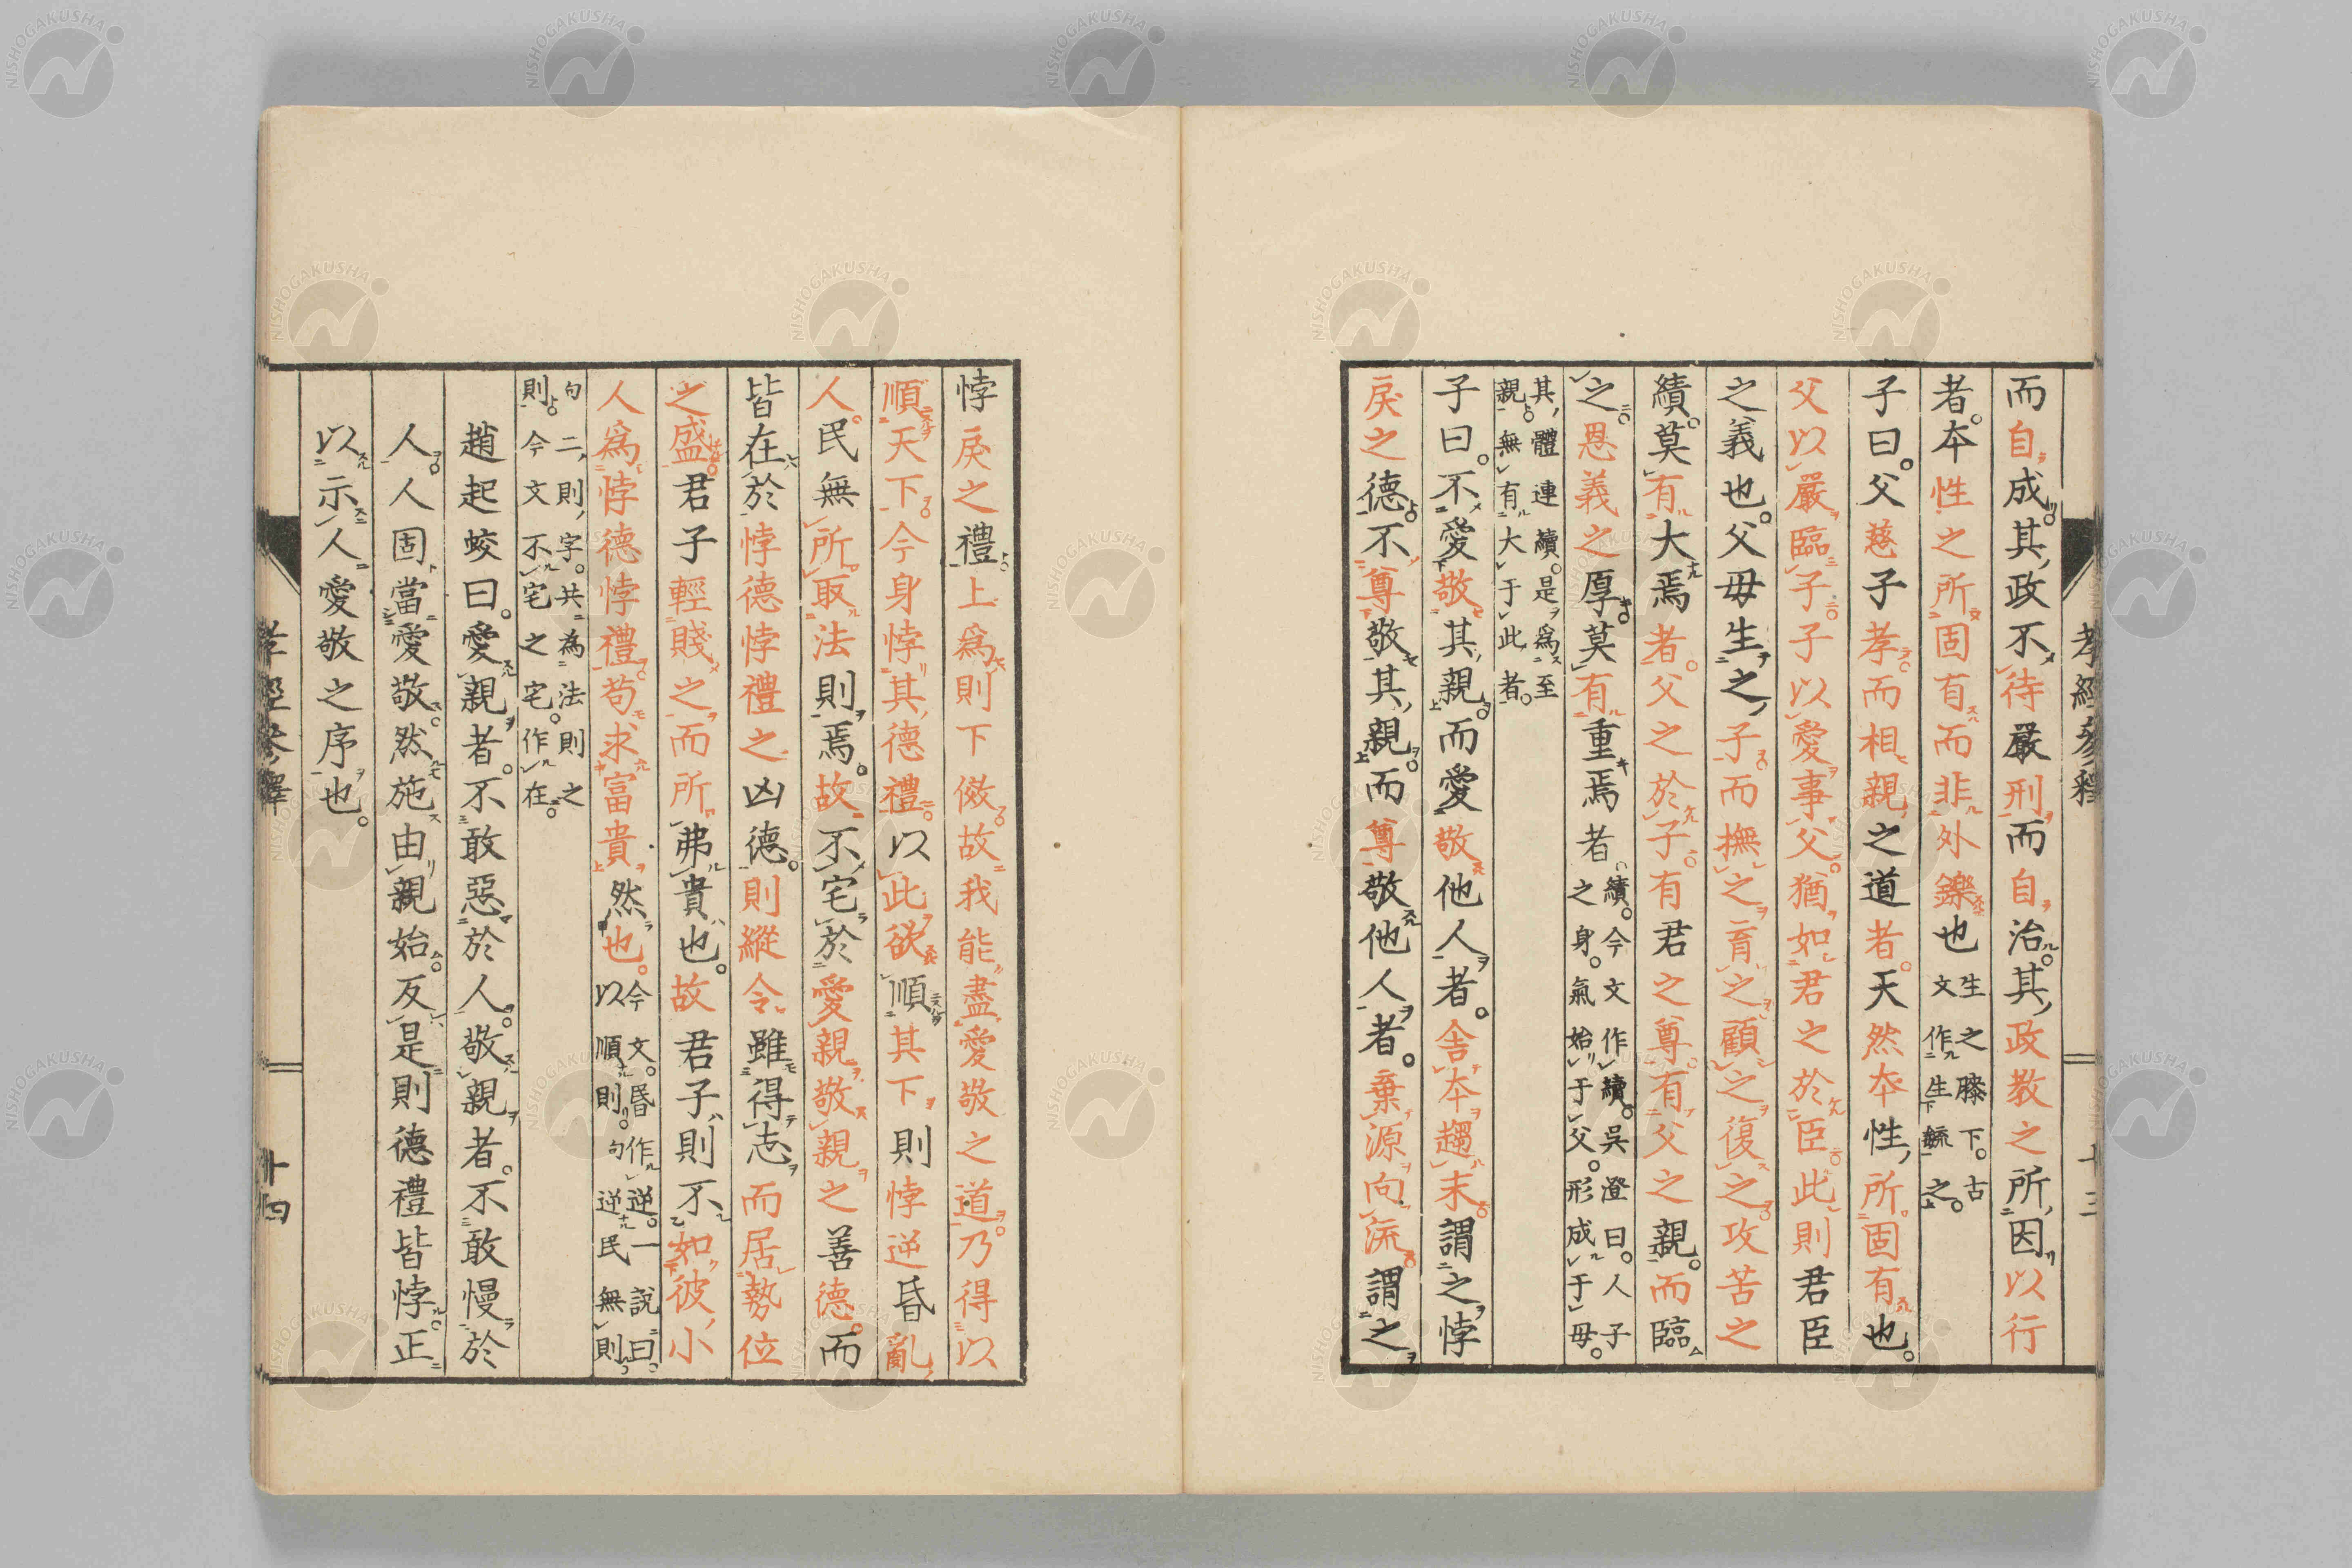 而自成其政不待嚴刑而自治其政教之所因以行
者本性之所固有而非外鑠也生之膝下。古文作生毓之。
子曰。父慈子孝而相親之道者。天然本性所固有也。
父以嚴臨子。子以愛事父。猶如君之於臣。此則君臣
之義也。父母生之。子而撫之育之顧之復之。攻苦之
績。莫有大焉者。父之於子。有君之尊。有父之親。而臨
之。恩義之厚。莫有重焉者。續。今文作續。吳澄曰。人子之身。氣始于父。形成于母。
其體連續。是爲至親。無有大于此者。
子曰。不愛敬其親。而愛敬他人者。舍本趨末。謂之悖
戾之德。不尊敬其親。而尊敬他人者。棄源向流。謂之
孝經參釋
十三
悖戾之禮。上爲則下傚。故我能盡愛敬之道。乃得以
順天下。今身悖其德禮。以此欲順其下。則悖逆昏亂。
人民無所取法則焉。故不宅於愛親敬親之善德。而
皆在於悖德悖禮之凶德。則縱令雖得志而居勢位
之盛。君子輕賤之而所弗貴也。故君子則不如彼小
人爲悖德悖禮。苟求富貴然也。今文。昏作逆。一說曰。以順則。句逆民無則。
句二則字。共為法則之則。今文不宅之宅。作在。
趙起蛟曰。愛親者。不敢惡於人。敬親者。不敢慢於
人。人固當愛敬。然施由親始。反是則德禮皆悖。正
以示人愛敬之序也。
孝經參釋
十四
NISHOGAKUSHA